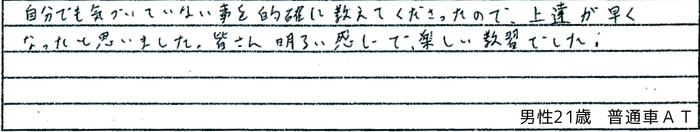 自分でも気づいていない事を的確に教えてくださったので、上達が早く
なったと思いました。皆さん明るい感じで、楽しい教習でした。
男性21歳 普通車AT